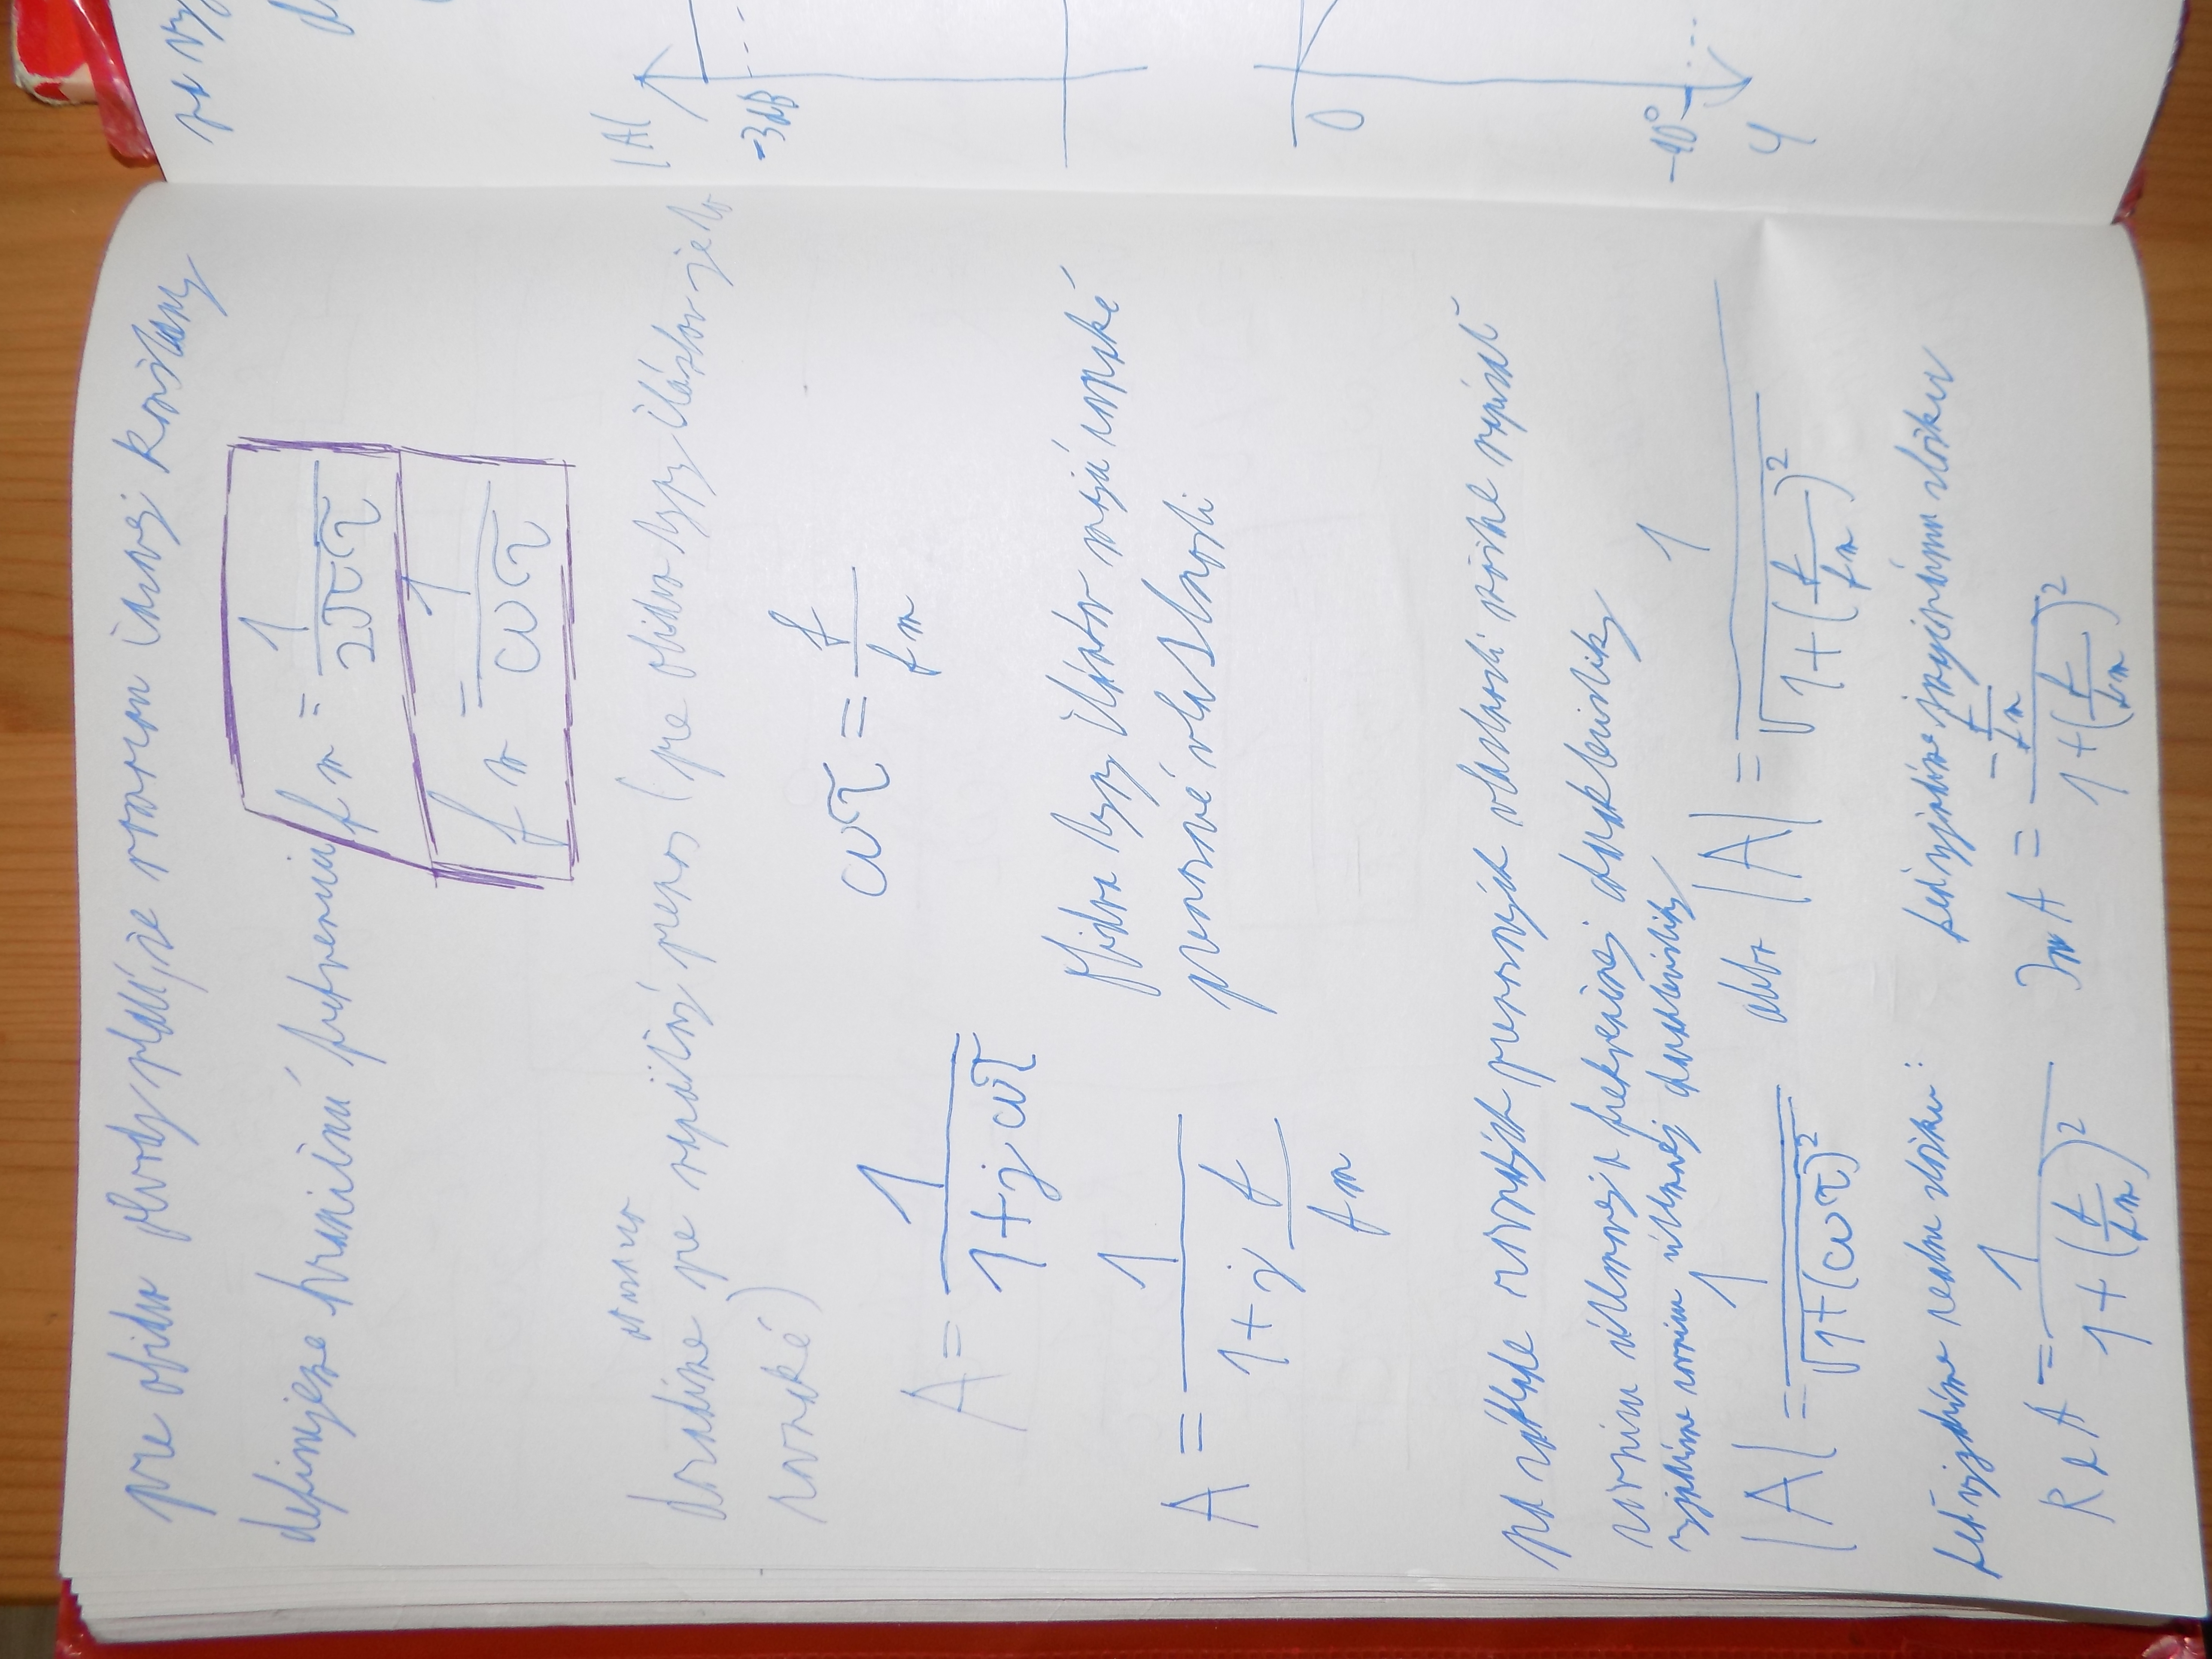 pre obidva obvody platí, že rozmer časovej konštanty
definujeme hraničnú frekvenciu f m = 1/(2πτ)
f m = 1/(ωτ)
dosadíme pre napäťový prenos (pre obidva typy článkov je to
rovnaké)
A = 1/(1+jωτ)
ωτ = f/(f m)
A = 1/(1+j f/(f m))
obidva typy článkov majú rovnaké
prenosové vlastnosti
na základe rovnakých prenosových vlastností môžme napísať
rovnicu útlmovej a frekvenčnej charakteristiky
vyjadríme rovnicu útlmovej charakteristiky
|A| = 1/√(1+(ωτ)²) alebo |A| = 1/√(1+(f/(f m))²)
keď vyjadríme reálnu zložku: keď vyjadríme imaginárnu zložku
Re A = 1/(1+(f/(f m))²) Im A = (−f/(f m))/(1+(f/(f m))²)
|A|
-3dB
0
-90°
φ